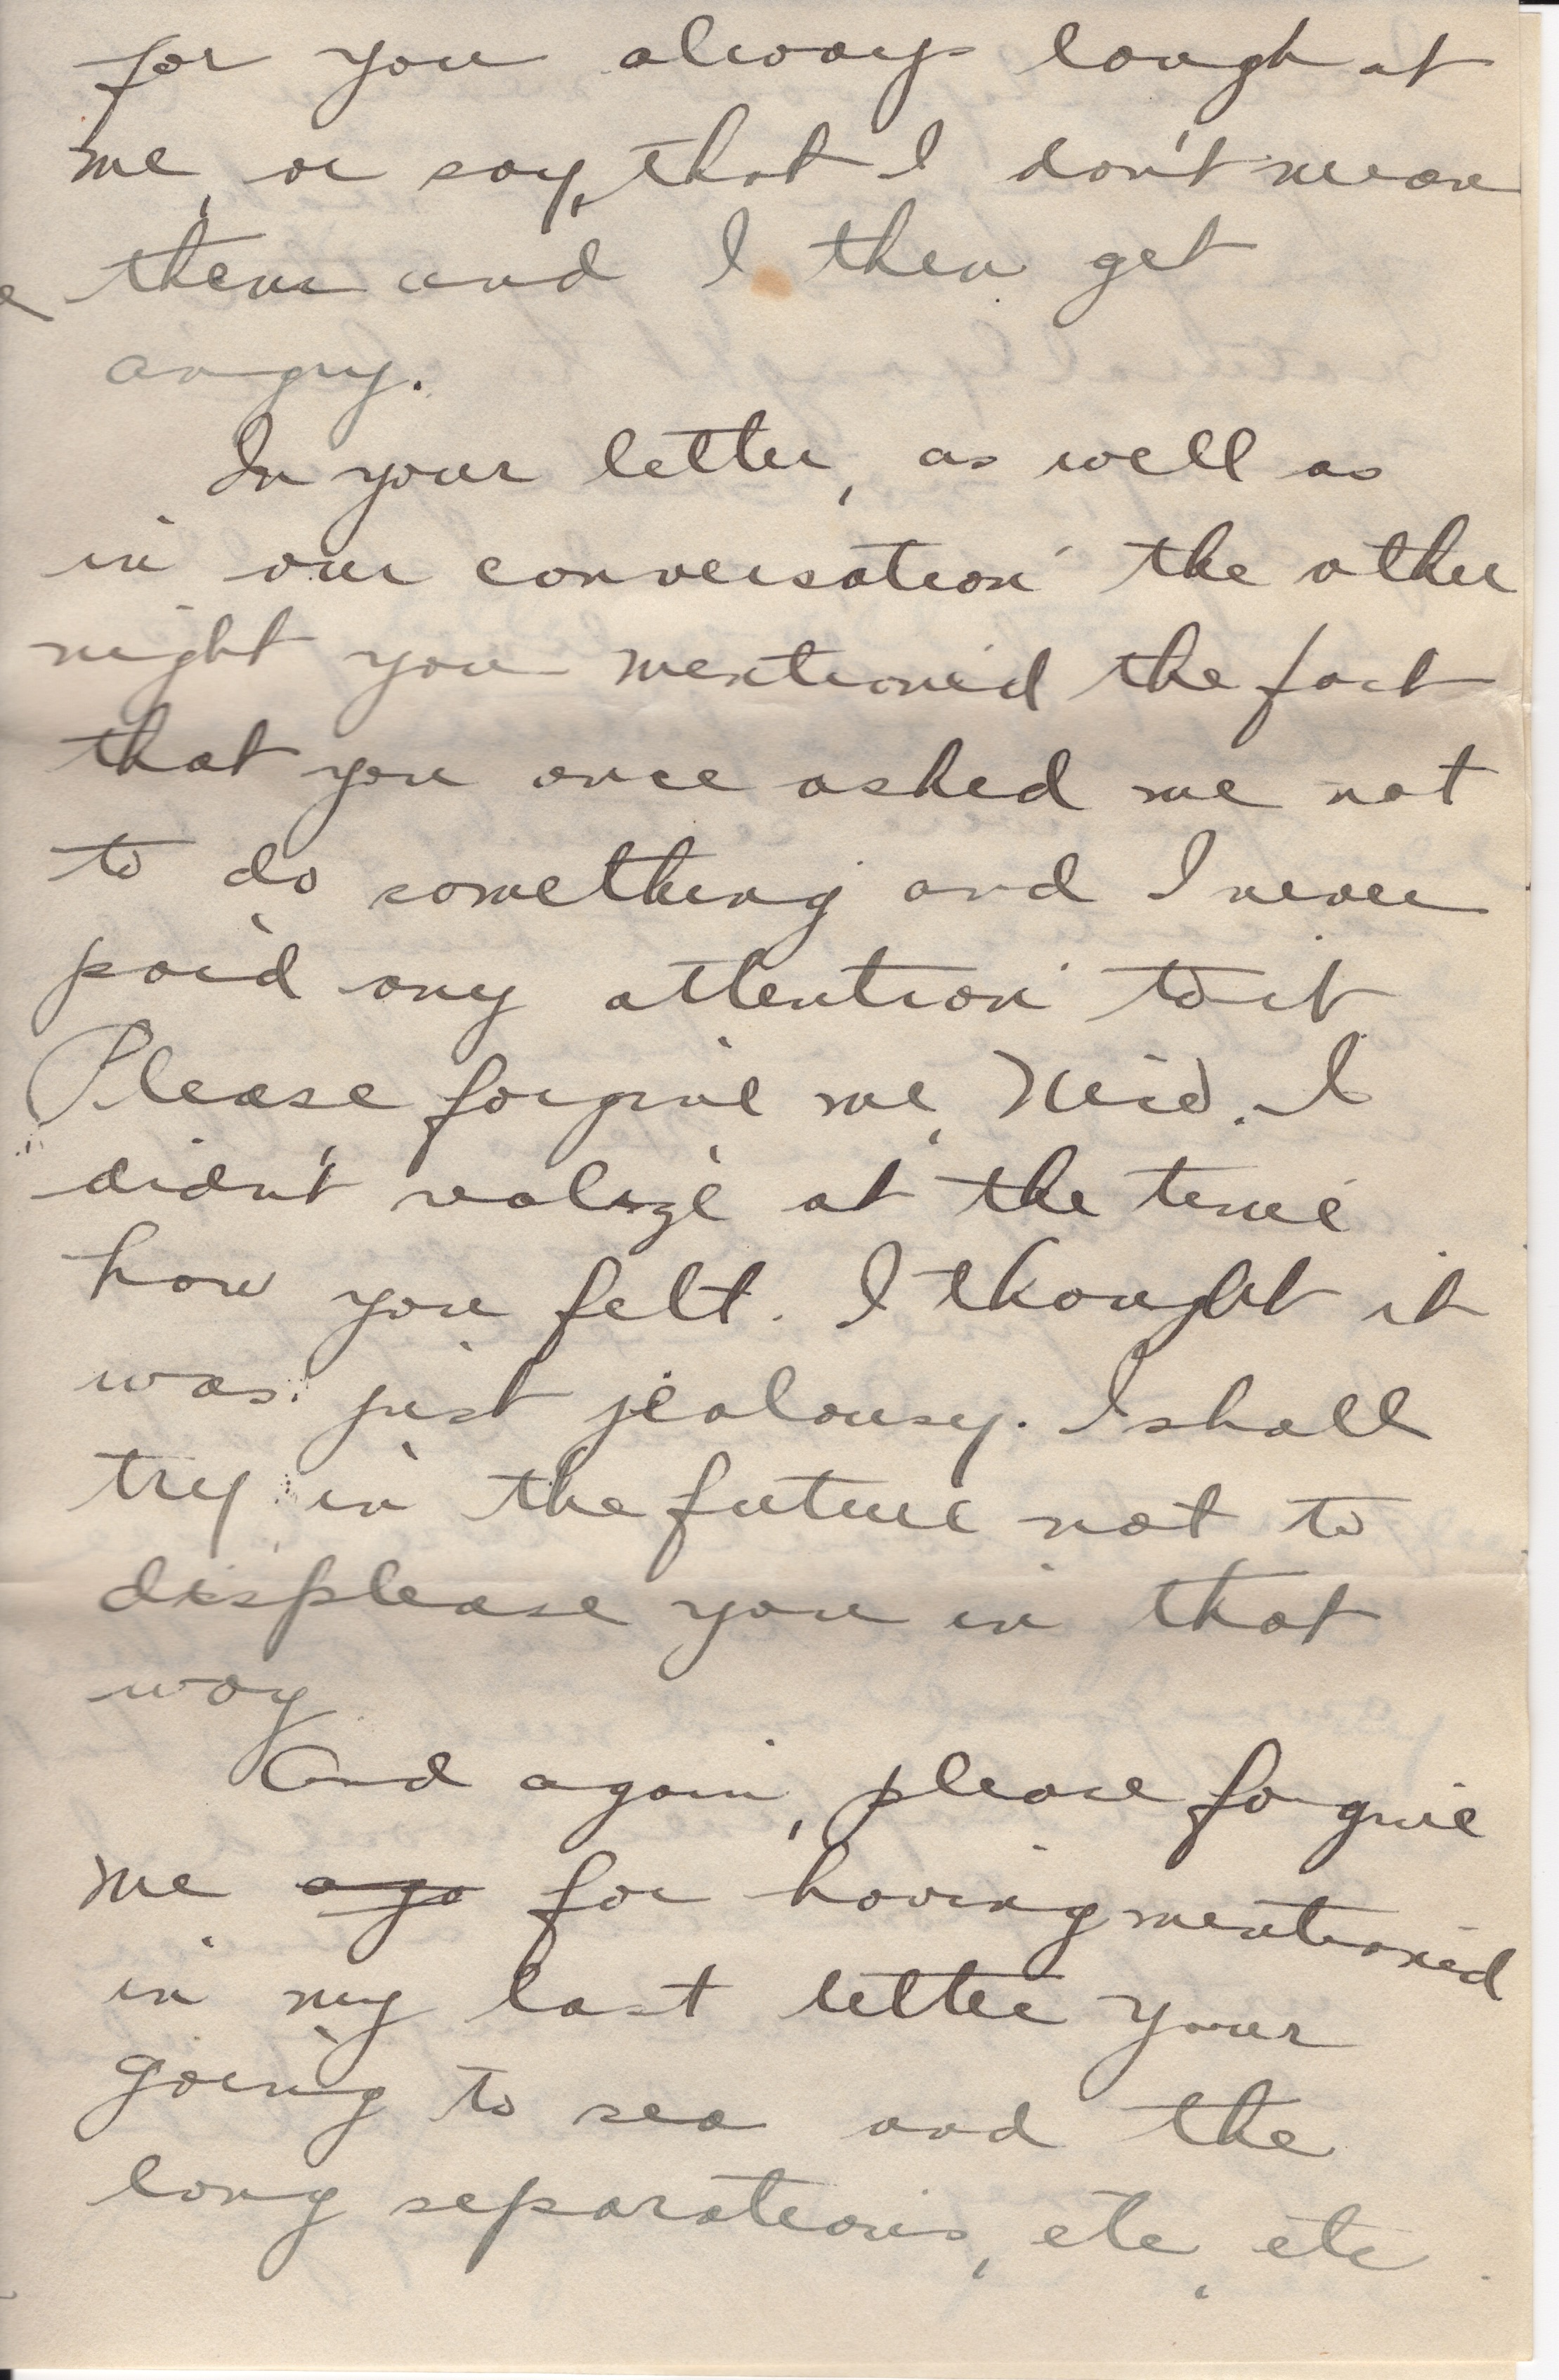 for you always laugh at
me, or say, that I don't mean
them and I then get
angry.
In your letter, as well as
in our conversation the other
night you mentioned the fact
that you once asked me not
to do something and I never
paid any attention to it
Please forgive me, Neid. I
didn't realize at the time
how you felt. I thought it
was just jealousy. I shall
try in the future not to
displease you in that
way
And again, please forgive
me ago for having mentioned
in my last letter your
going to sea and the
long separations, etc, etc.